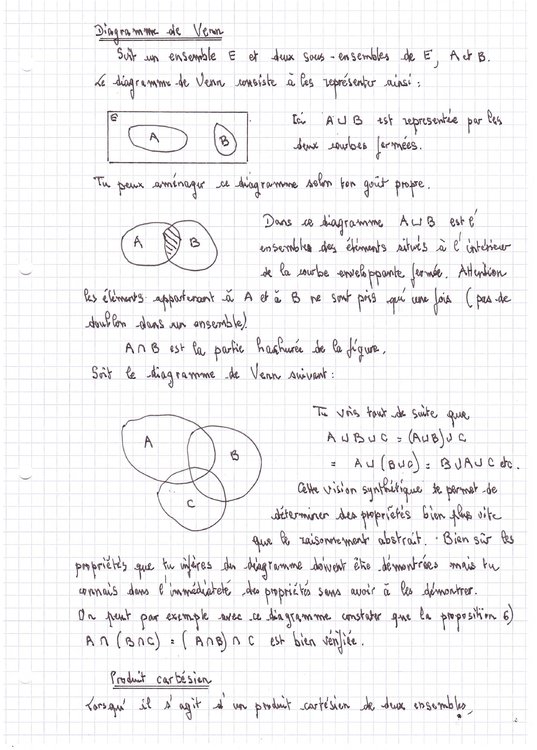 Diagramme de Venn
Soit un ensemble E et deux sous-ensembles de E, A et B.
Le diagramme de Venn consiste à les représenter ainsi :
E
A
B
Ici A ∪ B est représentée par les
deux courbes fermées.
Tu peux aménager ce diagramme selon ton goût propre.
A
B
Dans ce diagramme A ∪ B est l'
ensembles des éléments situés à l'intérieur
de la courbe enveloppante fermée. Attention
les éléments appartenant à A et à B ne sont pris qu'une fois (pas de
doublon dans un ensemble).
A ∩ B est la partie hachurée de la figure.
Soit le diagramme de Venn suivant :
A
B
C
Tu vois tout de suite que
A ∪ B ∪ C = (A ∪ B) ∪ C
= A ∪ (B ∪ C) = B ∪ A ∪ C etc.
Cette vision synthétique te permet de
déterminer des propriétés bien plus vite
que le raisonnement abstrait. Bien sûr les
propriétés que tu infères du diagramme doivent être démontrées mais tu
connais dans l'immédiateté des propriétés sans avoir à les démontrer.
On peut par exemple avec ce diagramme constater que la proposition 6)
A ∩ (B ∩ C) = (A ∩ B) ∩ C est bien vérifiée.
Produit cartésien
Lorsqu'il s'agit d'un produit cartésien de deux ensembles.